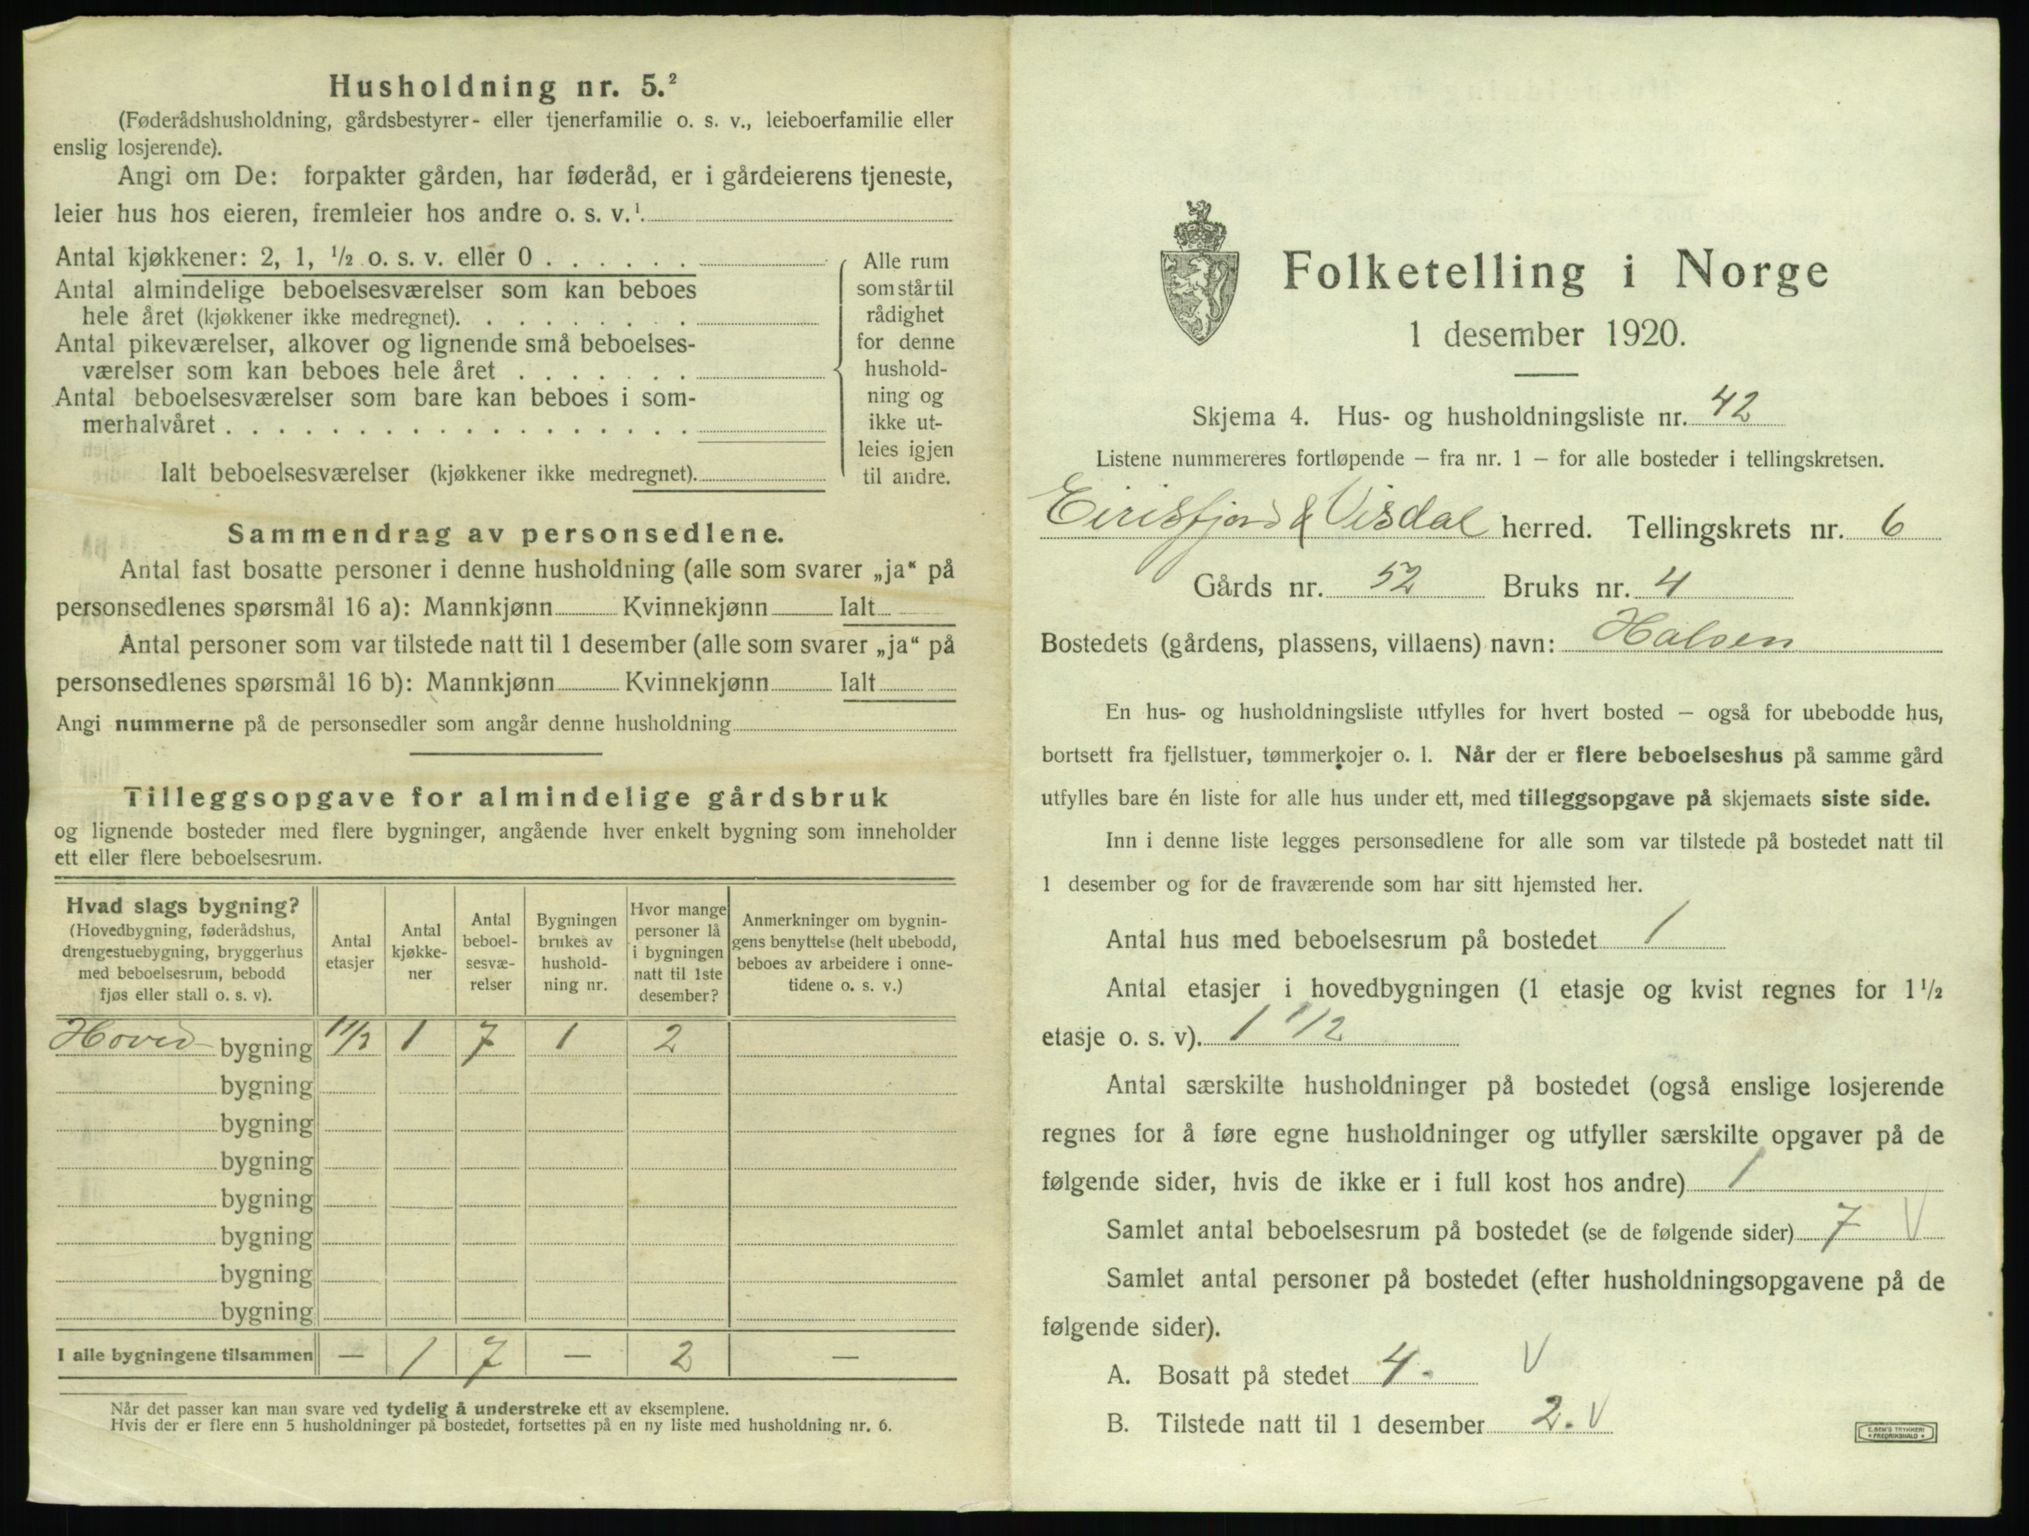 Husholdning nr. 5.²
(Føderådshusholdning, gårdsbestyrer- eller tjenerfamilie o. s. v., leieboerfamilie eller
enslig losjerende).
Angi om De: forpakter gården, har føderåd, er i gårdeierens tjeneste,
leier hus hos eieren, fremleier hos andre o. s. v.¹.
Antal kjøkkener: 2, 1, ½ o. s. v. eller 0 . . . . . .
Antal almindelige beboelsesværelser som kan beboes
hele året (kjøkkener ikke medregnet). . . . . . . . .
Antal pikeværelser, alkover og lignende små beboelses-
værelser som kan beboes hele året . . . . . . .
Antal beboelsesværelser som bare kan beboes i som-
merhalvåret . . . . . . . . . . . . . . . . . .
Ialt beboelsesværelser (kjøkkener ikke medregnet).
Alle rum
som står til
rådighet
for denne
hushold-
ning og
ikke ut-
leies igjen
til andre.
Sammendrag av personsedlene.
Antal fast bosatte personer i denne husholdning (alle som svarer „ja“ på
personsedlenes spørsmål 16 a): Mannkjønn Kvinnekjønn Ialt
Antal personer som var tilstede natt til 1 desember (alle som svarer „ja“ på
personsedlenes spørsmål 16 b): Mannkjønn Kvinnekjønn Ialt
Angi nummerne på de personsedler som angår denne husholdning
Tilleggsopgave for almindelige gårdsbruk
og lignende bosteder med flere bygninger, angående hver enkelt bygning som inneholder
ett eller flere beboelsesrum.
Hvad slags bygning?
(Hovedbygning, føderådshus,
drengestuebygning, bryggerhus
med beboelsesrum, bebodd
fjøs eller stall o. s. v).
Antal
etasjer
Antal
kjøkke-
ner
Antal
beboel-
sesvæ-
relser
Bygningen
brukes av
hushold-
ning nr.
Hvor mange
personer lå
i bygningen
natt til 1ste
desember?
Anmerkninger om bygnin-
gens benyttelse (helt ubebodd,
beboes av arbeidere i onne-
tidene o. s. v.)
Hoved bygning 1½ 1 7 1 2
bygning
bygning
bygning
bygning
bygning
bygning
bygning
I alle bygningene tilsammen — 1 7 — 2 —
Når det passer kan man svare ved tydelig å understreke ett av eksemplene.
Hvis der er flere enn 5 husholdninger på bostedet, fortsettes på en ny liste med husholdning nr. 6.
Folketelling i Norge
1 desember 1920.
Skjema 4. Hus- og husholdningsliste nr. 42
Listene nummereres fortløpende – fra nr. 1 – for alle bosteder i tellingskretsen.
Eirisfjord & Visdal herred. Tellingskrets nr. 6
Gårds nr. 52 Bruks nr. 4
Bostedets (gårdens, plassens, villaens) navn: Halsen
En hus- og husholdningsliste utfylles for hvert bosted – også for ubebodde hus,
bortsett fra fjellstuer, tømmerkojer o. l. Når der er flere beboelseshus på samme gård
utfylles bare én liste for alle hus under ett, med tilleggsopgave på skjemaets siste side.
Inn i denne liste legges personsedlene for alle som var tilstede på bostedet natt til
1 desember og for de fraværende som har sitt hjemsted her.
Antal hus med beboelsesrum på bostedet 1
Antal etasjer i hovedbygningen (1 etasje og kvist regnes for 1½
etasje o. s. v). 1 1/2
Antal særskilte husholdninger på bostedet (også enslige losjerende
regnes for å føre egne husholdninger og utfyller særskilte opgaver på de
følgende sider, hvis de ikke er i full kost hos andre) 1
Samlet antal beboelsesrum på bostedet (se de følgende sider) 7 V
Samlet antal personer på bostedet (efter husholdningsopgavene på de
følgende sider).
A. Bosatt på stedet 4. V
B. Tilstede natt til 1 desember 2. V
E. SEM'S TRYKKERI
FREDRIKSHALD